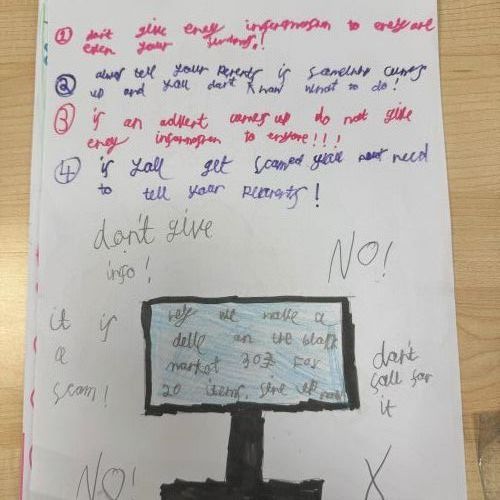 ① don't give eney infermosion to eney one
even your friends!
② alwas tell your Perents if someink cumes
up and you don't know what to do!
③ if an advert cumes up do not give
eney infermosion to enyone!!!
④ if you get scamed you need
to tell your Perents!
don't give
info!
NO!
it is
a
scam!
hey we make a
delle on the black
market 30£ For
20 items, sine up now
don't
fall for
it
NO!
X